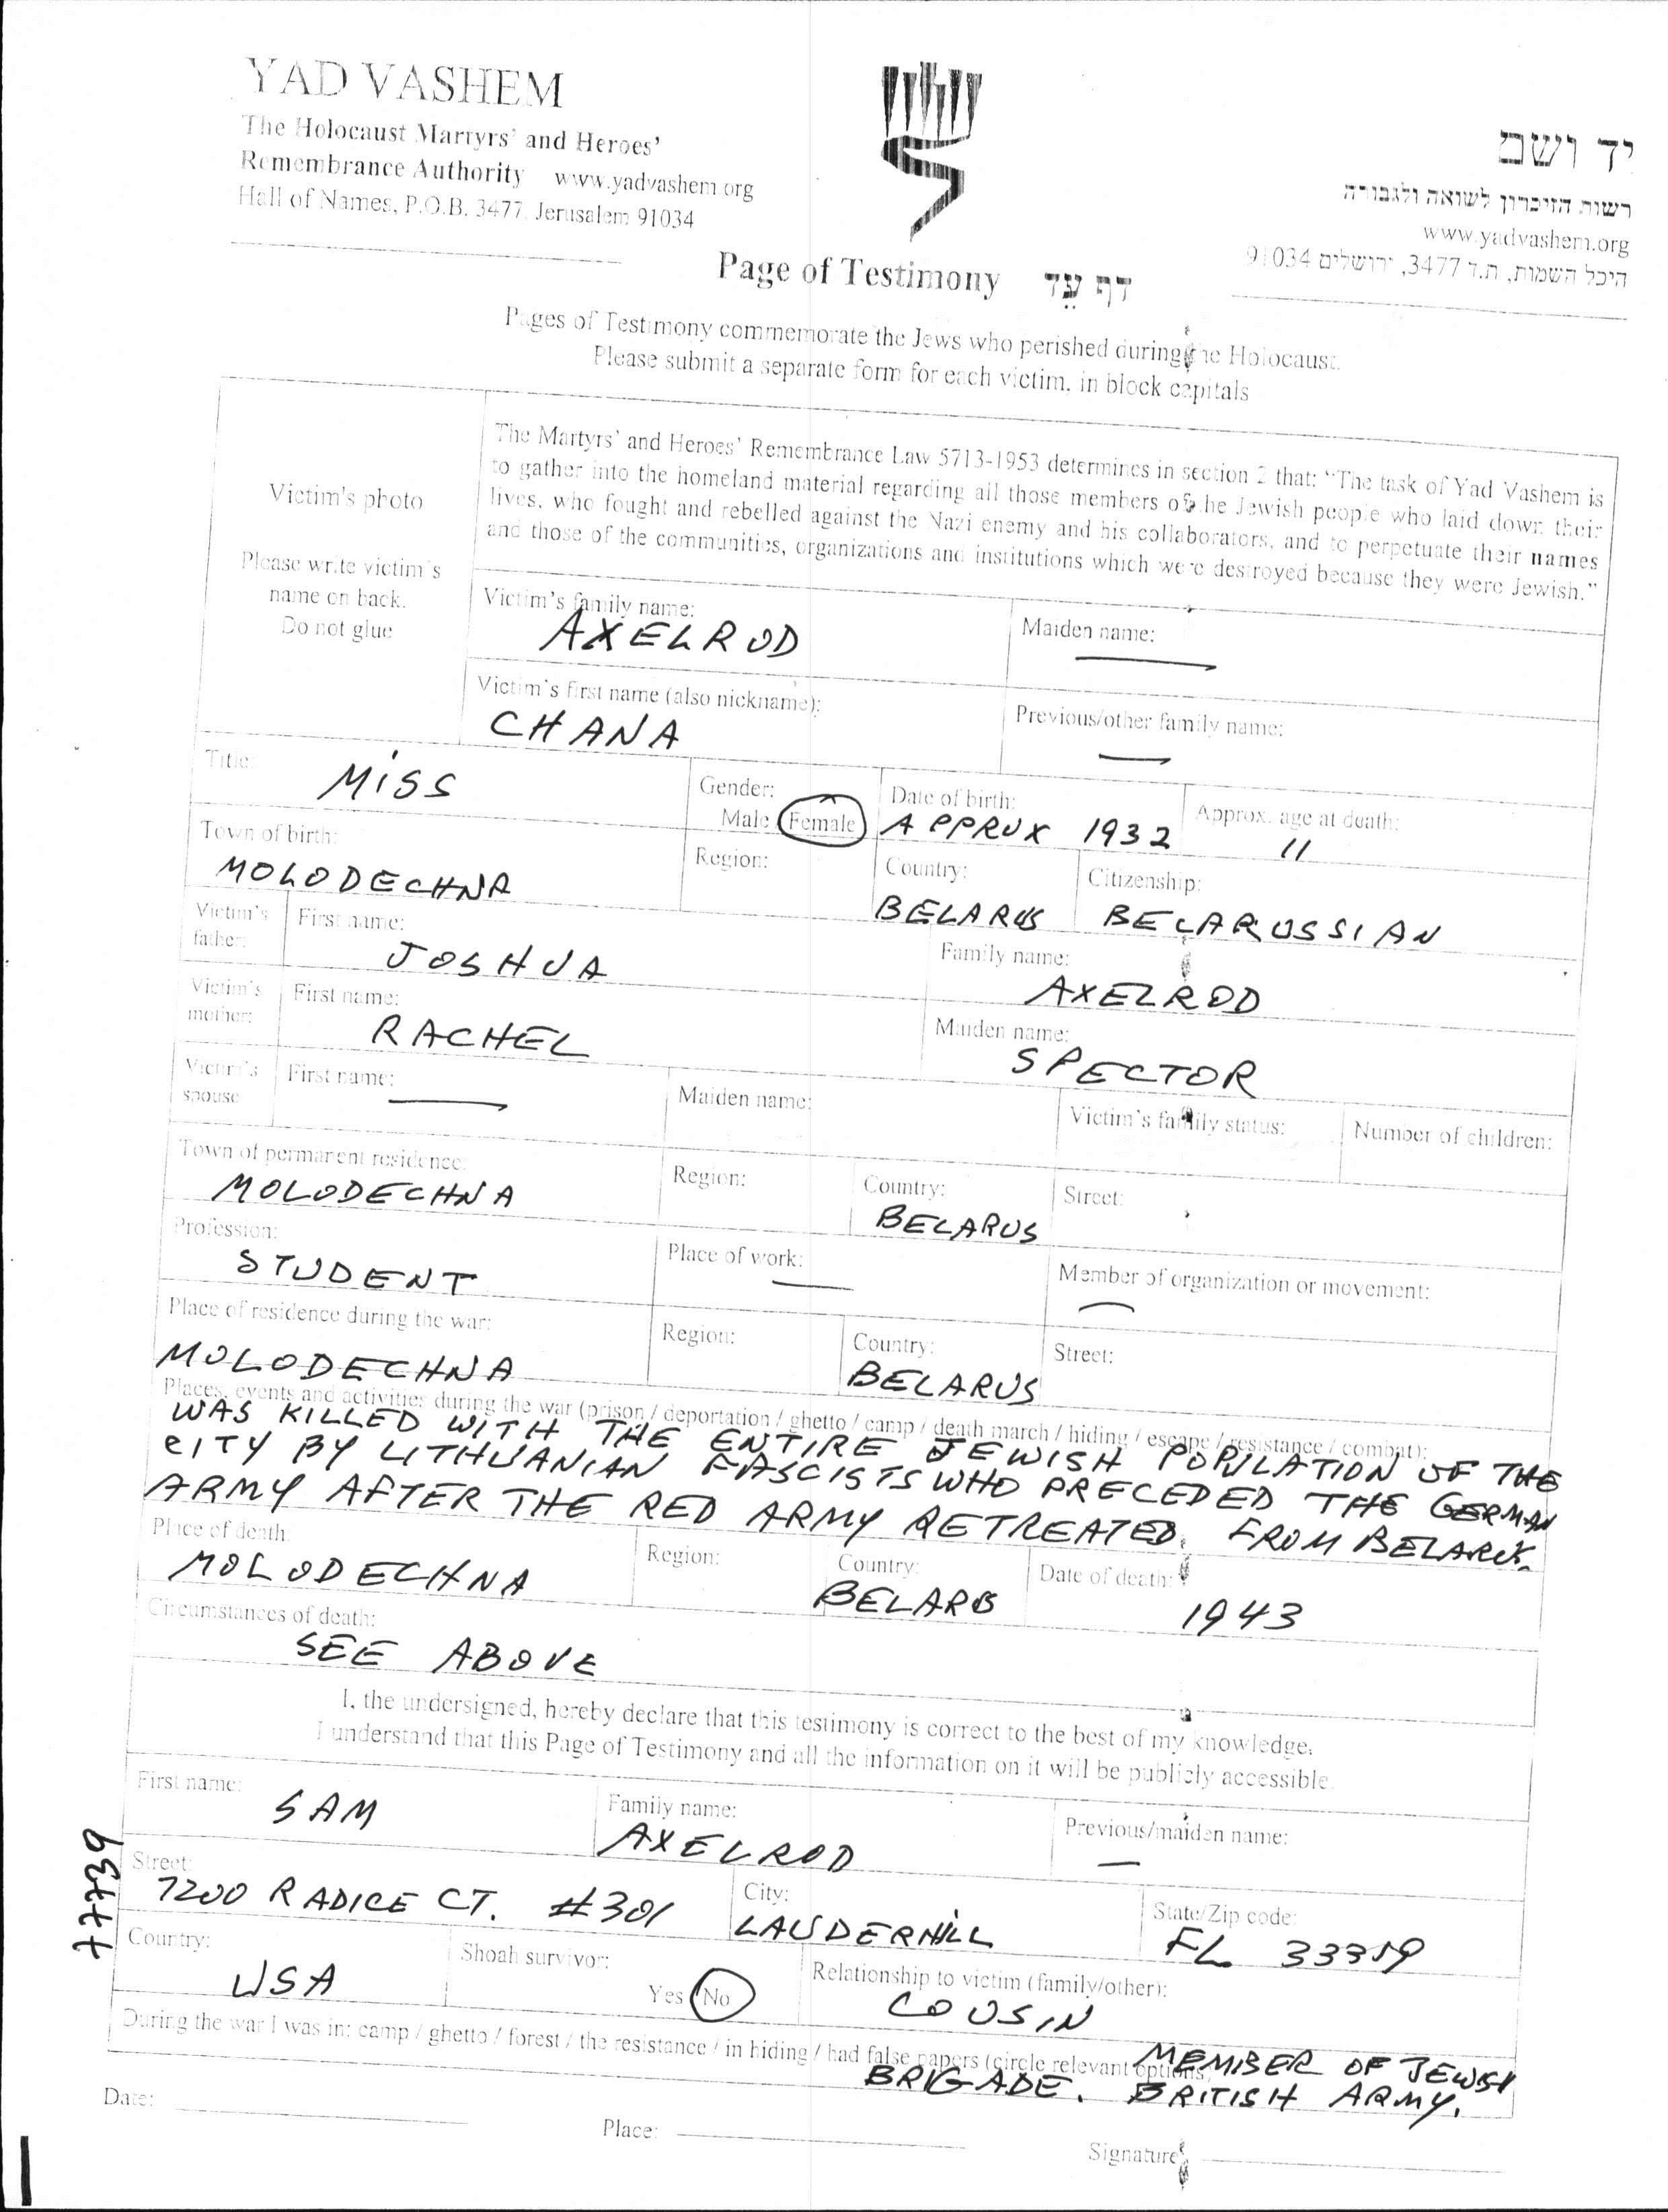 YAD VASHEM
The Holocaust Martyrs' and Heroes'
Remembrance Authority www.yadvashem.org
Hall of Names, P.O.B. 3477, Jerusalem 91034
יד ושם
רשות הזיכרון לשואה ולגבורה
www.yadvashem.org
היכל השמות, ת.ד 3477, ירושלים 91034
Page of Testimony דף עֵד
Pages of Testimony commemorate the Jews who perished during the Holocaust.
Please submit a separate form for each victim, in block capitals
Victim's photo
Please write victim's
name on back.
Do not glue
The Martyrs' and Heroes' Remembrance Law 5713-1953 determines in section 2 that: "The task of Yad Vashem is
to gather into the homeland material regarding all those members of the Jewish people who laid down their
lives, who fought and rebelled against the Nazi enemy and his collaborators, and to perpetuate their names
and those of the communities, organizations and institutions which were destroyed because they were Jewish."
Victim's family name: Maiden name:
AXELROD
Victim's first name (also nickname): Previous/other family name:
CHANA
Title: Gender: Date of birth: Approx. age at death:
MISS Male Female APPROX 1932 11
Town of birth: Region: Country: Citizenship:
MOLODECHNA BELARUS BELARUSSIAN
Victim's father: First name: Family name:
JOSHUA AXELROD
Victim's mother: First name: Maiden name:
RACHEL SPECTOR
Victim's spouse First name: Maiden name: Victim's family status: Number of children:
Town of permanent residence: Region: Country: Street:
MOLODECHNA BELARUS
Profession: Place of work: Member of organization or movement:
STUDENT
Place of residence during the war: Region: Country: Street:
MOLODECHNA BELARUS
Places, events and activities during the war (prison / deportation / ghetto / camp / death march / hiding / escape / resistance / combat):
WAS KILLED WITH THE ENTIRE JEWISH POPULATION OF THE
CITY BY LITHUANIAN FASCISTS WHO PRECEDED THE GERMAN
ARMY AFTER THE RED ARMY RETREATED. FROM BELARUS.
Place of death: Region: Country: Date of death:
MOLODECHNA BELARUS 1943
Circumstances of death:
SEE ABOVE
I, the undersigned, hereby declare that this testimony is correct to the best of my knowledge.
I understand that this Page of Testimony and all the information on it will be publicly accessible.
First name: Family name: Previous/maiden name:
SAM AXELROD
Street: City: State/Zip code:
7200 RADICE CT. #301 LAUDERHILL FL 33319
Country: Shoah survivor: Relationship to victim (family/other):
USA Yes No COUSIN
During the war I was in: camp / ghetto / forest / the resistance / in hiding / had false papers (circle relevant options)
MEMBER OF JEWISH
BRIGADE. BRITISH ARMY.
Date: Place: Signature:
77739